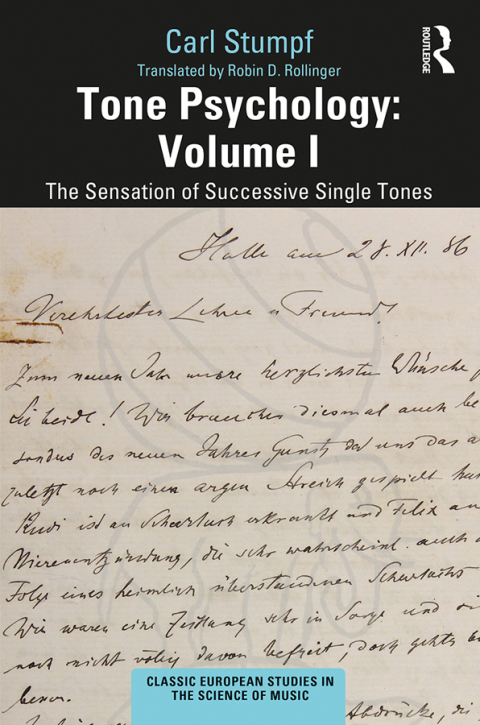 Carl Stumpf
ROUTLEDGE
Translated by Robin D. Rollinger
Tone Psychology:
Volume I
The Sensation of Successive Single Tones
Halle am 28. XII. 86
Verehrtester Lehrer u Freund!
Zum neuen Jahr unsere herzlichsten Wünsche f
Sie beide! Wir brauchen diesmal auch be
sonders des neuen Jahres Gunst, da uns das a
zuletzt noch einen argen Streich gespielt hat
Rudi ist an Scharlach erkrankt und Felix an
Nierenentzündung, die sehr wahrscheinl. auch
Folge eines heimlich überstandenen Scharlachs
Wir waren eine Zeitlang sehr in Sorge und
noch nicht völlig davon befreit, doch gehts
besser.
Abdrücke, die
CLASSIC EUROPEAN STUDIES IN
THE SCIENCE OF MUSIC